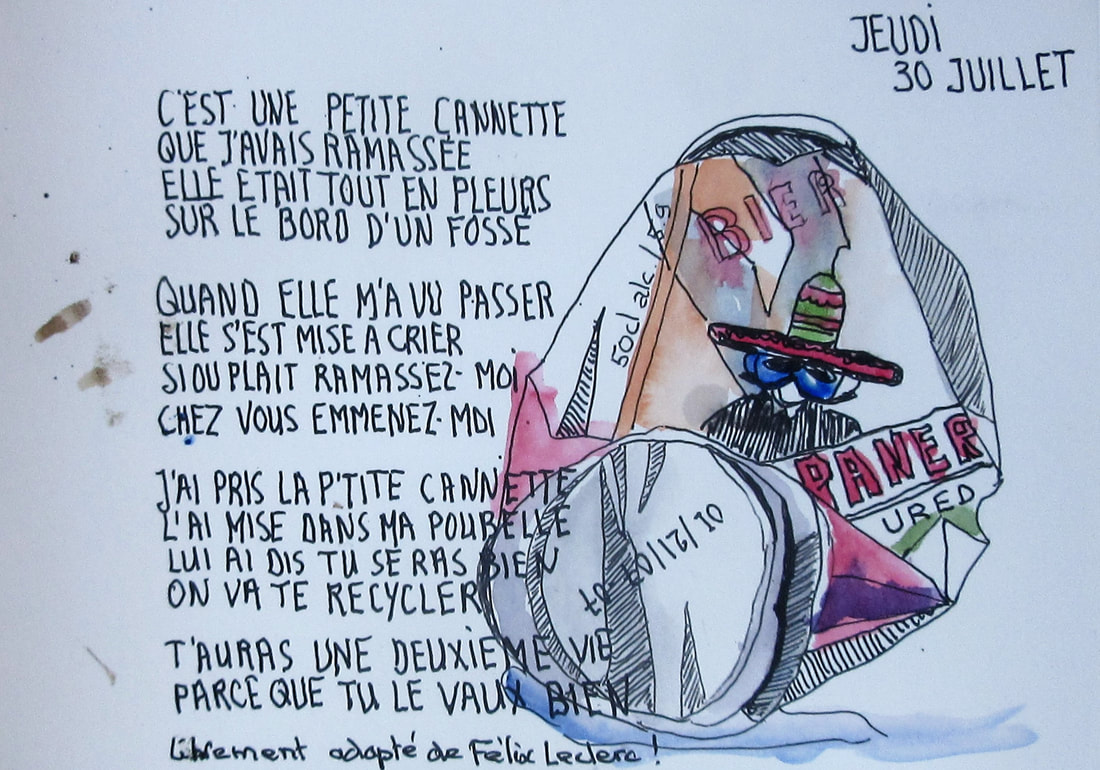 JEUDI
30 JUILLET
C'EST UNE PETITE CANNETTE
QUE J'AVAIS RAMASSÉE
ELLE ETAIT TOUT EN PLEURS
SUR LE BORD D'UN FOSSÉ
QUAND ELLE M'A VU PASSER
ELLE S'EST MISE A CRIER
SIOUPLAIT RAMASSEZ-MOI
CHEZ VOUS EMMENEZ-MOI
J'AI PRIS LA P'TITE CANNETTE
L'AI MISE DANS MA POUBELLE
LUI AI DIS TU SERAS BIEN
ON VA TE RECYCLER
T'AURAS UNE DEUXIEME VIE
PARCE QUE TU LE VAUX BIEN
Librement adapté de Félix Leclerc !
BIER
50cl alc.
PANER
URED
01/12/10